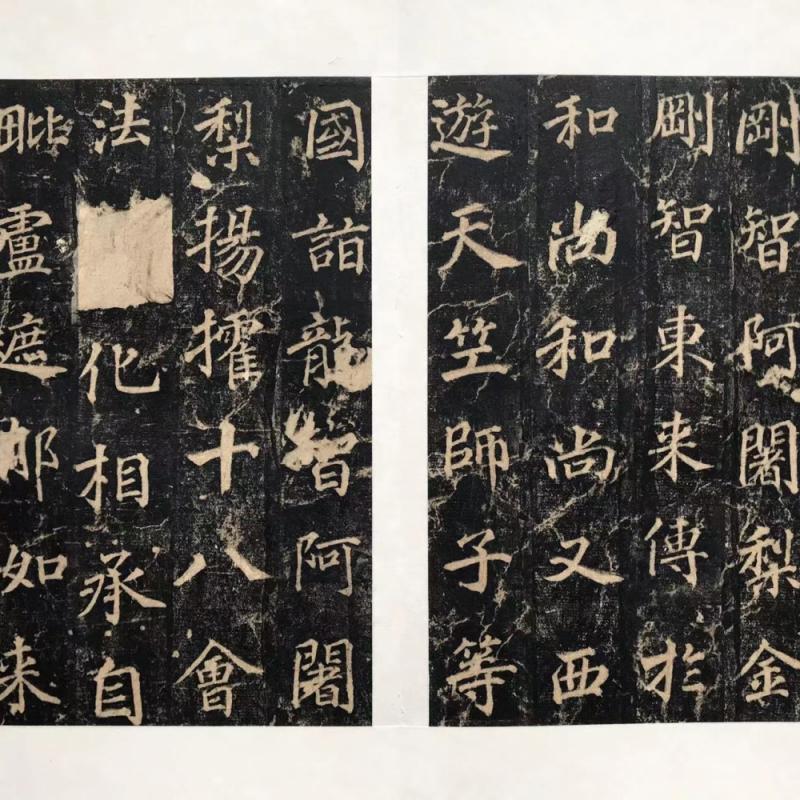 剛智阿闍梨金
剛智東来傳於
和尚和尚又西
遊天竺師子等
國詣龍智阿闍
梨揚攉十八會
法化相承自
毗盧遮那如来